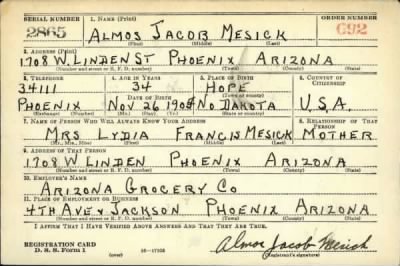 SERIAL NUMBER 1. NAME (Print) ORDER NUMBER
2865 ALMOS JACOB MESICK C92
(First) (Middle) (Last)
2. ADDRESS (Print)
1708 W. LINDEN ST PHOENIX ARIZONA
(Number and street or R. F. D. number) (Town) (County) (State)
3. TELEPHONE 4. AGE IN YEARS 5. PLACE OF BIRTH 6. COUNTRY OF CITIZENSHIP
34111 34 HOPE
DATE OF BIRTH (Town or county)
PHOENIX NOV 26 1905 NO DAKOTA U.S.A.
(Exchange) (Number) (Mo.) (Day) (Yr.) (State or country)
7. NAME OF PERSON WHO WILL ALWAYS KNOW YOUR ADDRESS 8. RELATIONSHIP OF THAT PERSON
MRS LYDIA FRANCIS MESICK MOTHER
(Mr., Mrs., Miss) (First) (Middle) (Last)
9. ADDRESS OF THAT PERSON
1708 W LINDEN PHOENIX ARIZONA
(Number and street or R. F. D. number) (Town) (County) (State)
10. EMPLOYER'S NAME
ARIZONA GROCERY CO
11. PLACE OF EMPLOYMENT OR BUSINESS
4TH AVE & JACKSON PHOENIX ARIZONA
(Number and street or R. F. D. number) (Town) (County) (State)
I AFFIRM THAT I HAVE VERIFIED ABOVE ANSWERS AND THAT THEY ARE TRUE.
REGISTRATION CARD
D. S. S. Form 1 (over) Almos Jacob Mesick
(Registrant's signature)